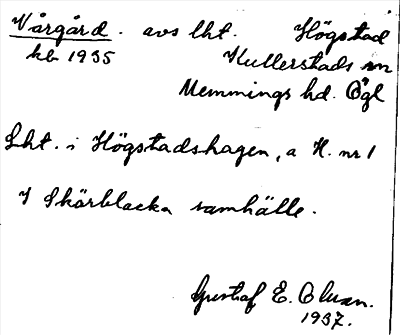 Vårgård. avs lht. Högstad
kb 1935 Kullerstads sn
Memmings hd. Ögl
Lht. i Högstadshagen, a H. nr 1
I Skärblacka samhälle.
Gustaf E. Olsson.
1937.